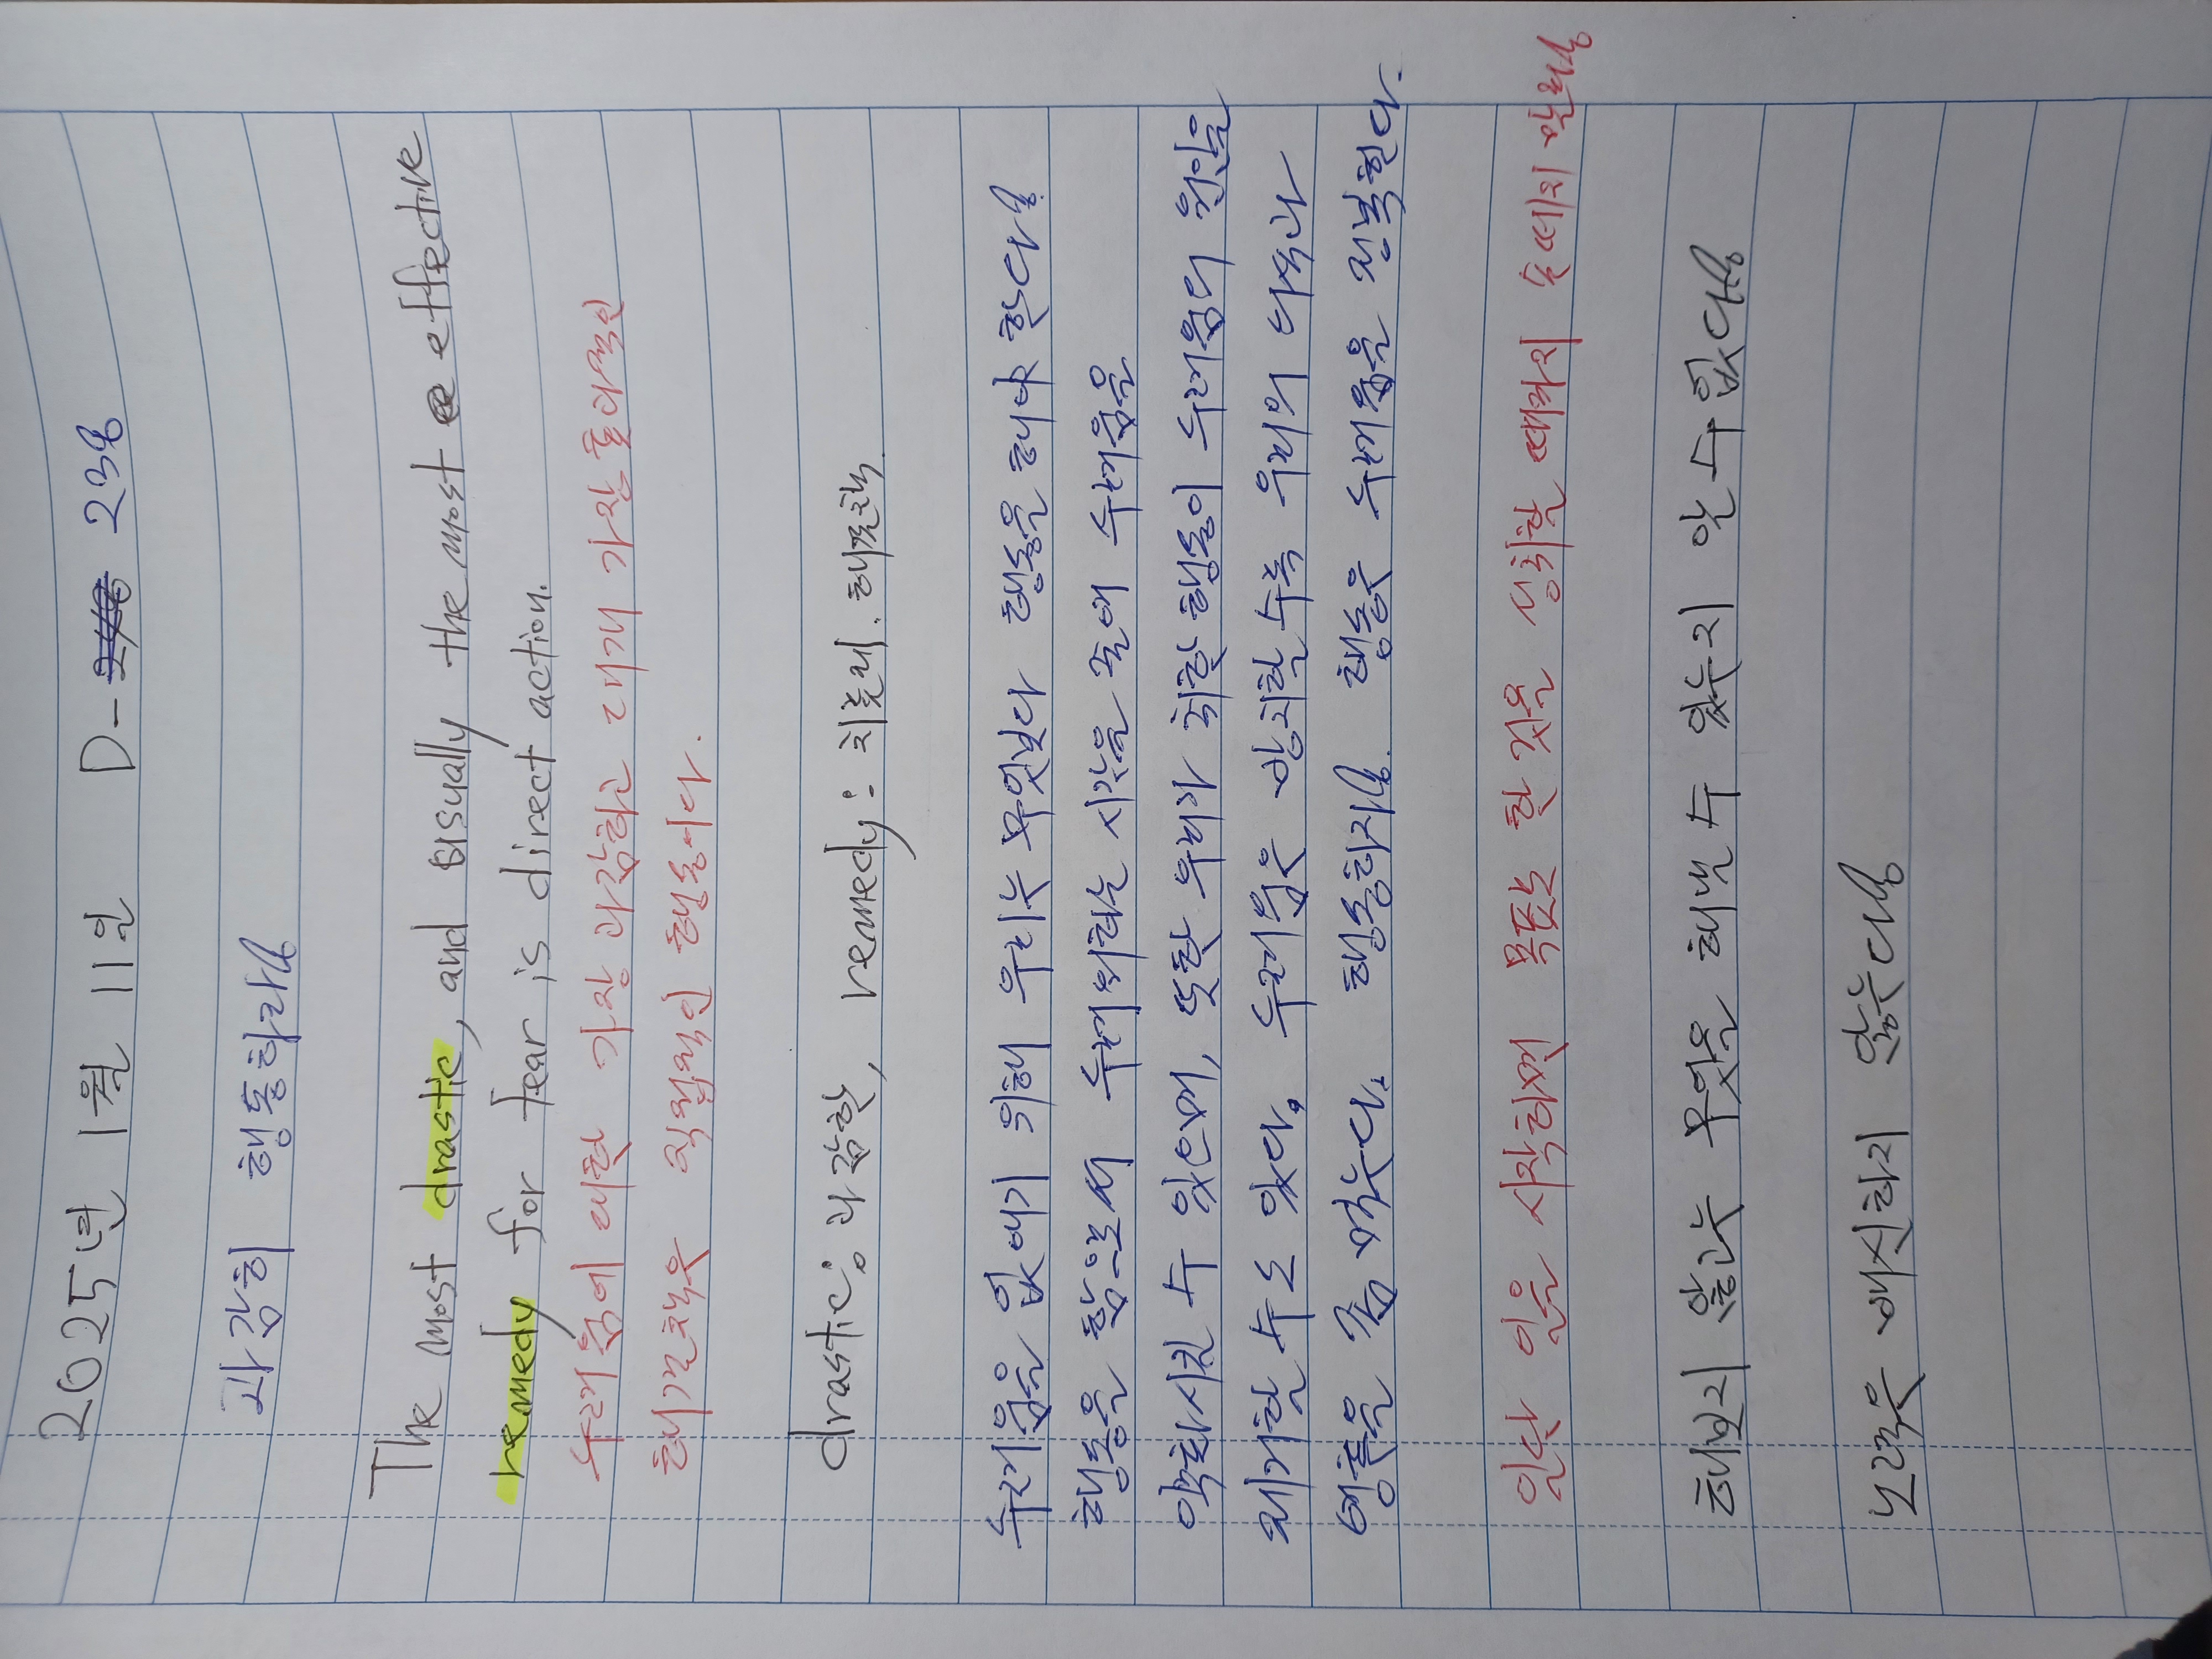 2025년 1월 11일 D-238
과감히 행동하라!
The most drastic, and usually the most effective
remedy for fear is direct action.
두려움에 대한 가장 과감하고 대개 가장 효과적인
해결책은 직접적인 행동이다.
drastic: 과감한, remedy: 치료제. 해결책.
두려움을 없애기 위해 우리는 무엇보다 행동을 해야 한다!
행동을 함으로써 두려워하는 시간을 줄여 두려움을
약화시킬 수 있으며, 또한 우리가 취한 행동이 두려움의 원인을
제거할 수도 있다. 두려움은 방치할수록 우리의 나약한
영혼을 좀 먹는다. 행동하자! 행동은 두려움을 정복한다.
일단 일을 시작하면 목표로 한 것을 성취할 때까지 손떼지 말라!
해보지 않고는 무엇을 해낼 수 있는지 알 수 없다!
노력은 배신하지 않는다!